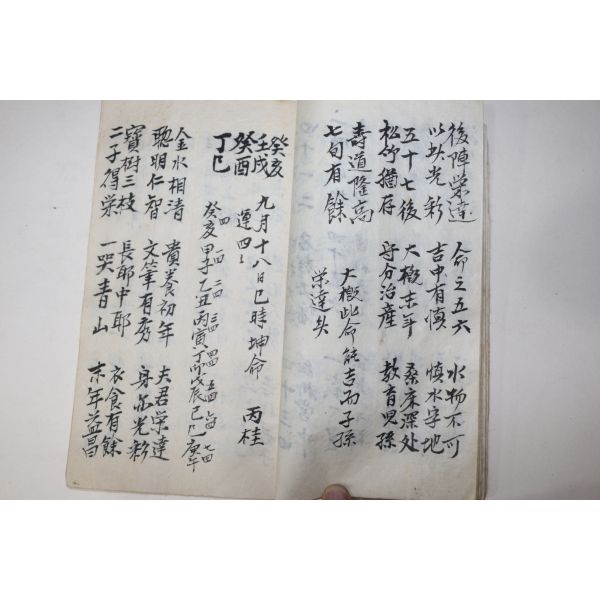 後陣榮達 人命之五六 水物不可
以炊光彩 吉中有慎 慎水字地
五十七後 大概末年 桑床深处
松竹猶存 守分治產 教育兒孫
壽道隆高 大概此命能吉而子孫
七旬有餘 榮達矣
癸亥
壬戌 九月十八日巳時坤命 丙桂
癸酉 運四
丁巳
四 一四 二四 三四 四四 五四 六四 七四
癸亥 甲子 乙丑 丙寅 丁卯 戊辰 己巳 庚午
金水相清 貴養初年 夫君榮達
聰明仁智 文筆有秀 身而光彩
寶樹三枝 長耶中耶 衣食有餘
二子得榮 一哭青山 末年益昌